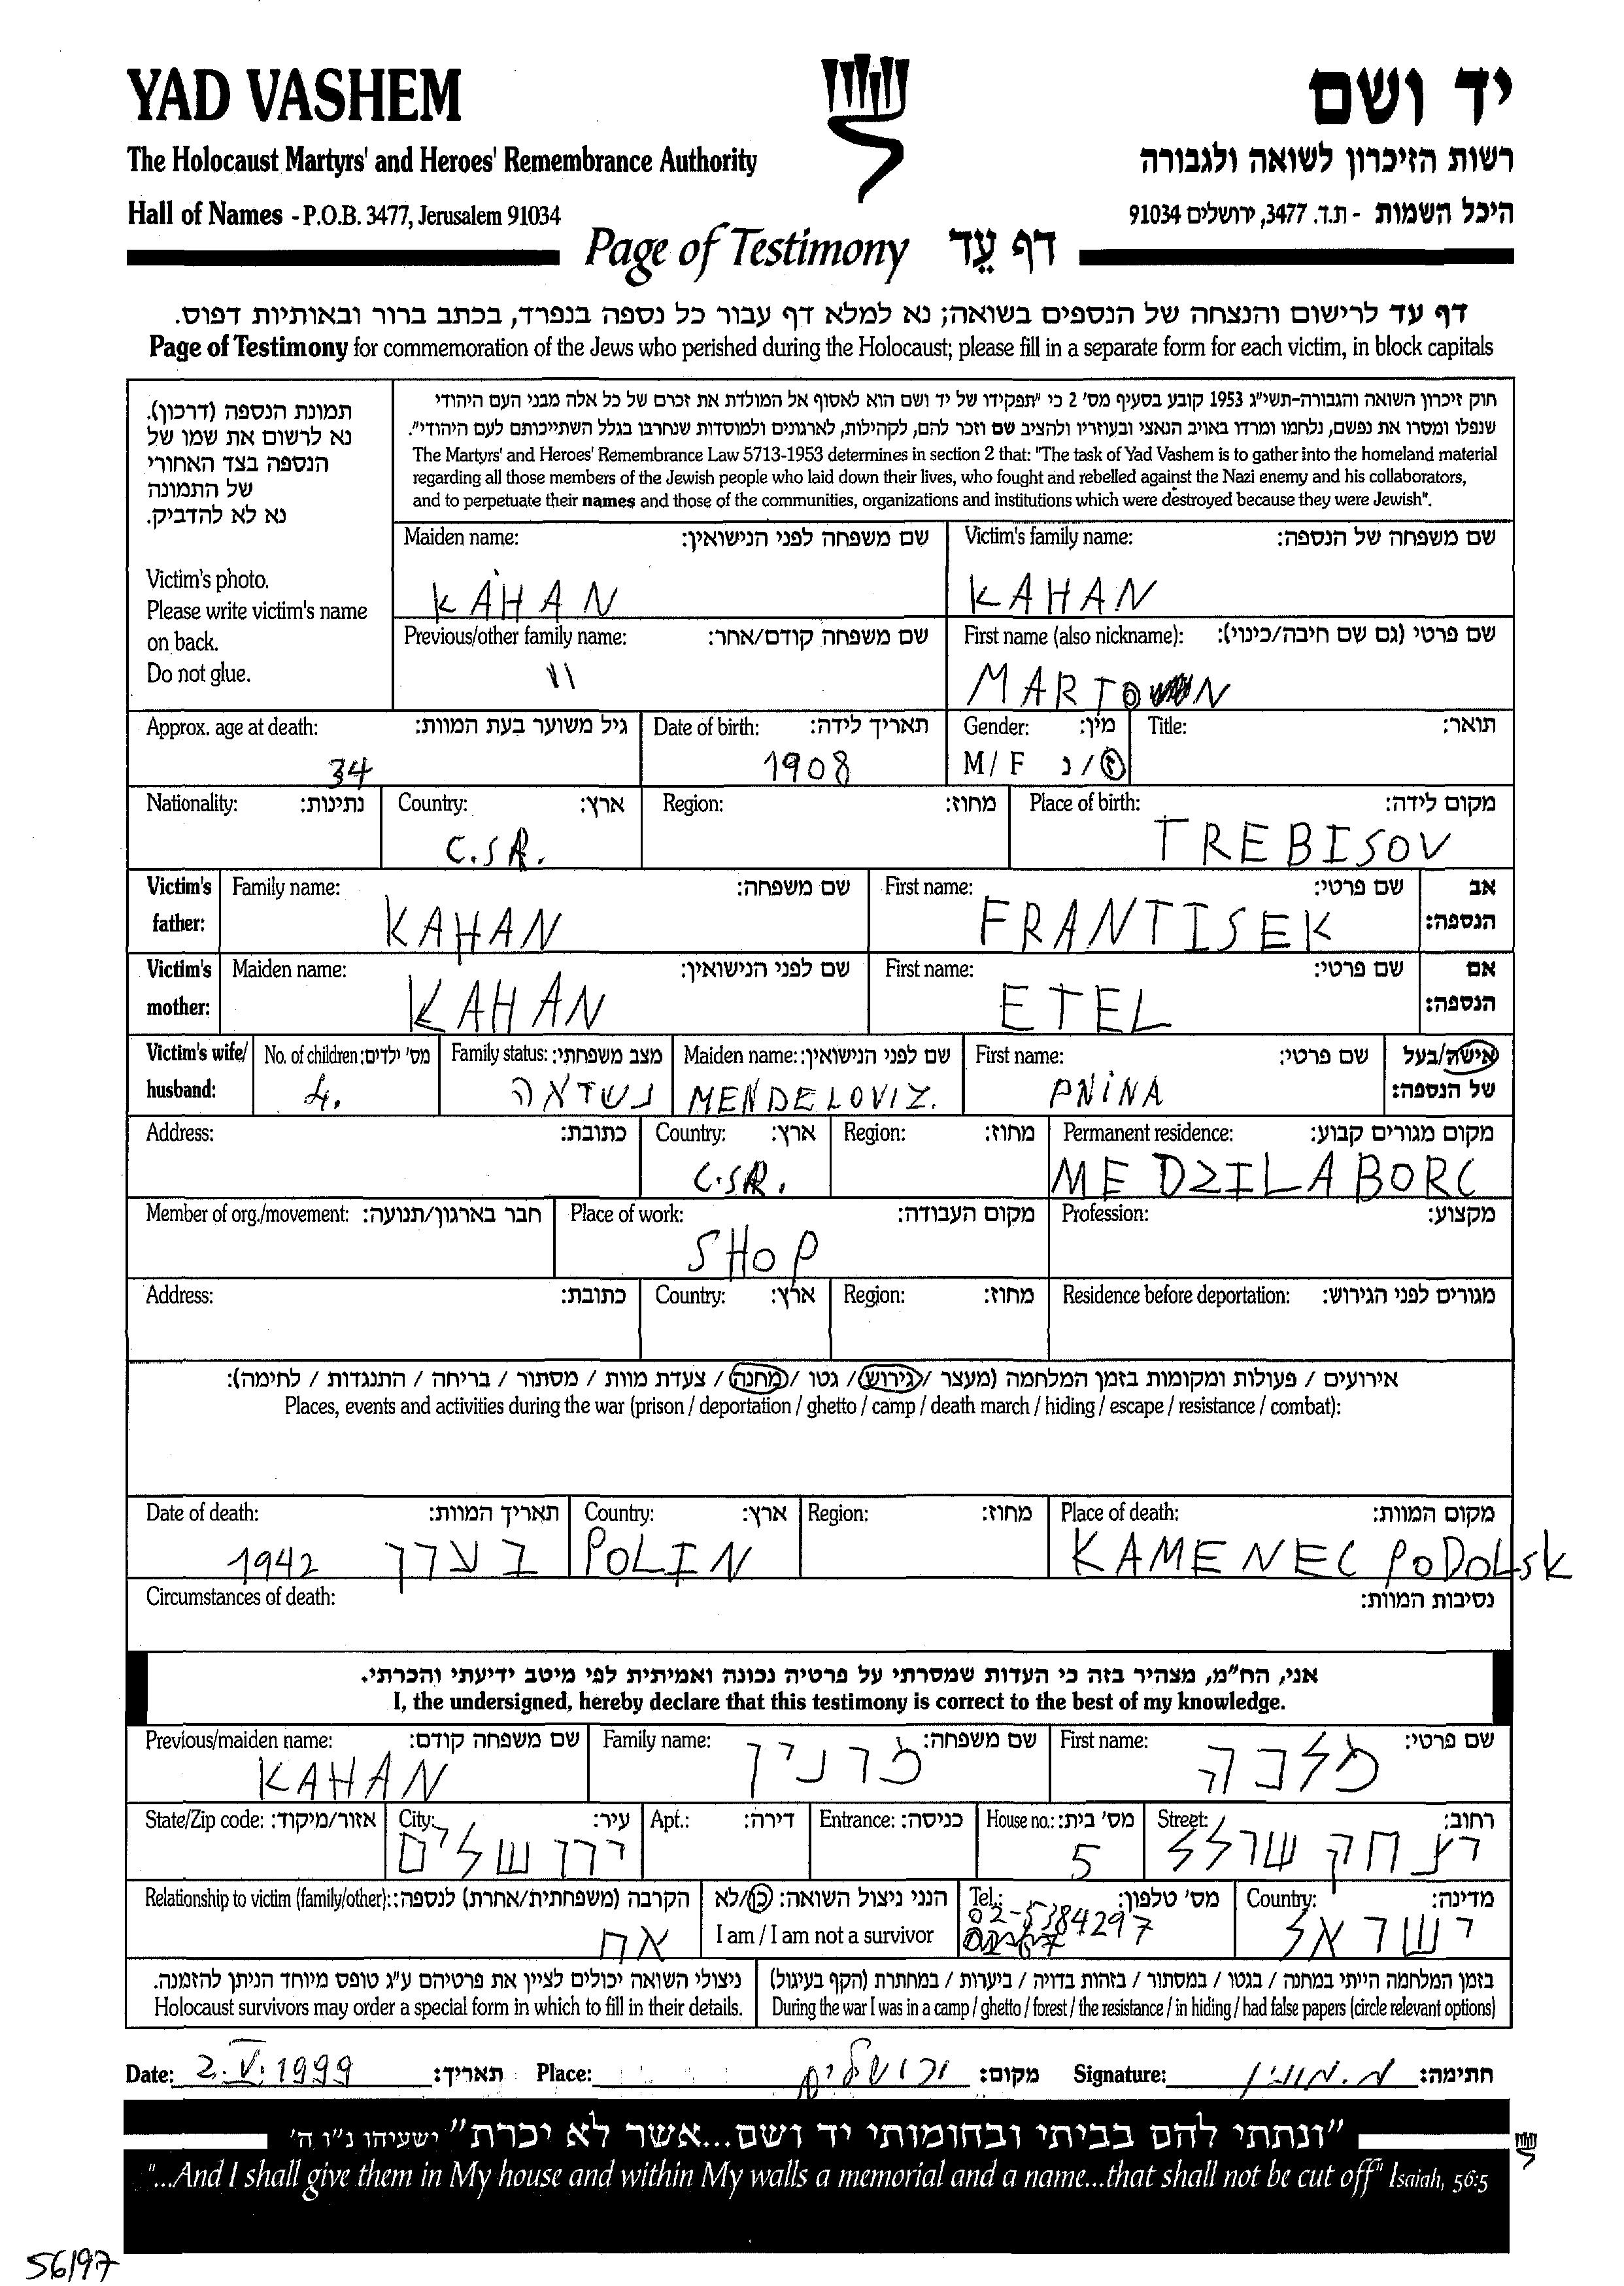 YAD VASHEM
יד ושם
The Holocaust Martyrs' and Heroes' Remembrance Authority
רשות הזיכרון לשואה ולגבורה
Hall of Names - P.O.B. 3477, Jerusalem 91034
היכל השמות - ת.ד. 3477, ירושלים 91034
Page of Testimony דף עֵד
דף עד לרישום והנצחה של הנספים בשואה; נא למלא דף עבור כל נספה בנפרד, בכתב ברור ובאותיות דפוס.
Page of Testimony for commemoration of the Jews who perished during the Holocaust; please fill in a separate form for each victim, in block capitals
תמונת הנספה (דרכון).
נא לרשום את שמו של
הנספה בצד האחורי
של התמונה
נא לא להדביק.
Victim's photo.
Please write victim's name
on back.
Do not glue.
חוק זיכרון השואה והגבורה-תשי"ג 1953 קובע בסעיף מס' 2 כי "תפקידו של יד ושם הוא לאסוף אל המולדת את זכרם של כל אלה מבני העם היהודי
שנפלו ומסרו את נפשם, נלחמו ומרדו באויב הנאצי ובעוזריו ולהציב שם וזכר להם, לקהילות, לארגונים ולמוסדות שנחרבו בגלל השתייכותם לעם היהודי".
The Martyrs' and Heroes' Remembrance Law 5713-1953 determines in section 2 that: "The task of Yad Vashem is to gather into the homeland material
regarding all those members of the Jewish people who laid down their lives, who fought and rebelled against the Nazi enemy and his collaborators,
and to perpetuate their names and those of the communities, organizations and institutions which were destroyed because they were Jewish".
Maiden name: שם משפחה לפני הנישואין: Victim's family name: שם משפחה של הנספה:
KAHAN KAHAN
Previous/other family name: שם משפחה קודם/אחר: First name (also nickname): שם פרטי (גם שם חיבה/כינוי):
" MARTON
Approx. age at death: גיל משוער בעת המוות: Date of birth: תאריך לידה: Gender: מין: Title: תואר:
34 1908 M/F ז/נ
Nationality: נתינות: Country: ארץ: Region: מחוז: Place of birth: מקום לידה:
C.S.R. TREBISOV
Victim's father: Family name: שם משפחה: First name: שם פרטי: אב הנספה:
KAHAN FRANTISEK
Victim's mother: Maiden name: שם לפני הנישואין: First name: שם פרטי: אם הנספה:
KAHAN ETEL
Victim's wife/husband: No. of children: מס' ילדים: Family status: מצב משפחתי: Maiden name: שם לפני הנישואין: First name: שם פרטי: אישה/בעל של הנספה:
4. נשואה MENDELOVIZ. PNINA
Address: כתובת: Country: ארץ: Region: מחוז: Permanent residence: מקום מגורים קבוע:
C.S.R. MEDZILABORC
Member of org./movement: חבר בארגון/תנועה: Place of work: מקום העבודה: Profession: מקצוע:
SHOP
Address: כתובת: Country: ארץ: Region: מחוז: Residence before deportation: מגורים לפני הגירוש:
אירועים / פעולות ומקומות בזמן המלחמה (מעצר / גירוש / גטו / מחנה / צעדת מוות / מסתור / בריחה / התנגדות / לחימה):
Places, events and activities during the war (prison / deportation / ghetto / camp / death march / hiding / escape / resistance / combat):
Date of death: תאריך המוות: Country: ארץ: Region: מחוז: Place of death: מקום המוות:
1942 בערך POLIN KAMENEC PODOLSK
Circumstances of death: נסיבות המוות:
אני, הח"מ, מצהיר בזה כי העדות שמסרתי על פרטיה נכונה ואמיתית לפי מיטב ידיעתי והכרתי.
I, the undersigned, hereby declare that this testimony is correct to the best of my knowledge.
Previous/maiden name: שם משפחה קודם: Family name: שם משפחה: First name: שם פרטי:
KAHAN מלכה
State/Zip code: אזור/מיקוד: City: עיר: Apt.: דירה: Entrance: כניסה: House no.: מס' בית: Street: רחוב:
ירושלים 5
Relationship to victim (family/other): הקרבה (משפחתית/אחרת) לנספה: הנני ניצול השואה: כן/לא Tel.: מס' טלפון: Country: מדינה:
אח I am / I am not a survivor 02-5384297 ישראל
ניצולי השואה יכולים לציין את פרטיהם ע"ג טופס מיוחד הניתן להזמנה.
Holocaust survivors may order a special form in which to fill in their details.
בזמן המלחמה הייתי במחנה / בגטו / במסתור / בזהות בדויה / ביערות / במחתרת (הקף בעיגול)
During the war I was in a camp / ghetto / forest / the resistance / in hiding / had false papers (circle relevant options)
Date: 2.V.1999 תאריך: Place: ירושלים מקום: Signature: חתימה:
"ונתתי להם בביתי ובחומותי יד ושם...אשר לא יכרת" ישעיהו נ"ו ה'
"...And I shall give them in My house and within My walls a memorial and a name...that shall not be cut off" Isaiah, 56:5
56/97